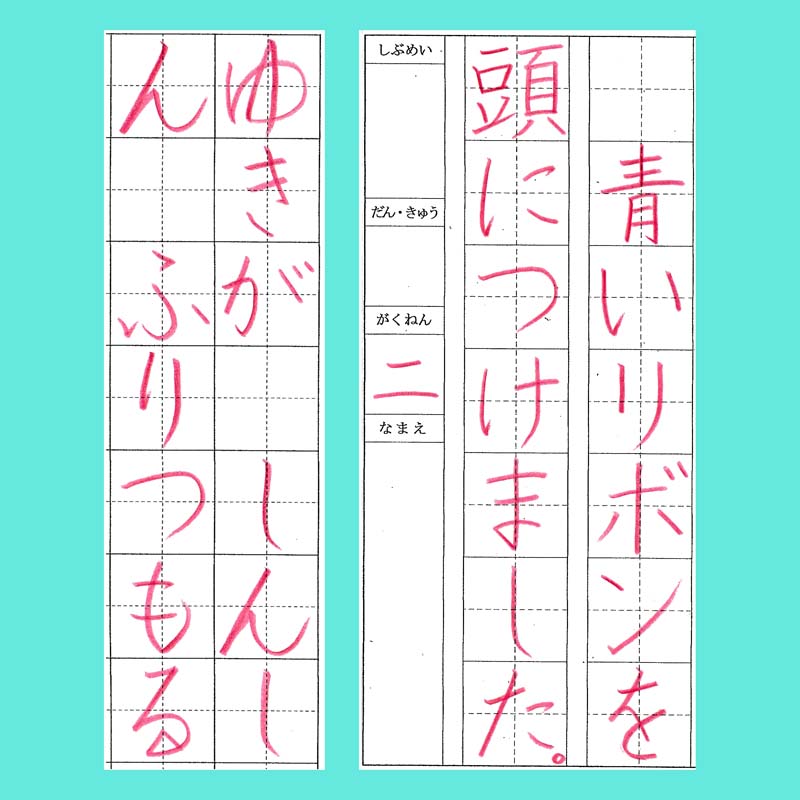 青いリボンを
頭につけました。
しぶめい
だん・きゅう
がくねん
二
なまえ
ゆきが しんし
ん ふりつもる